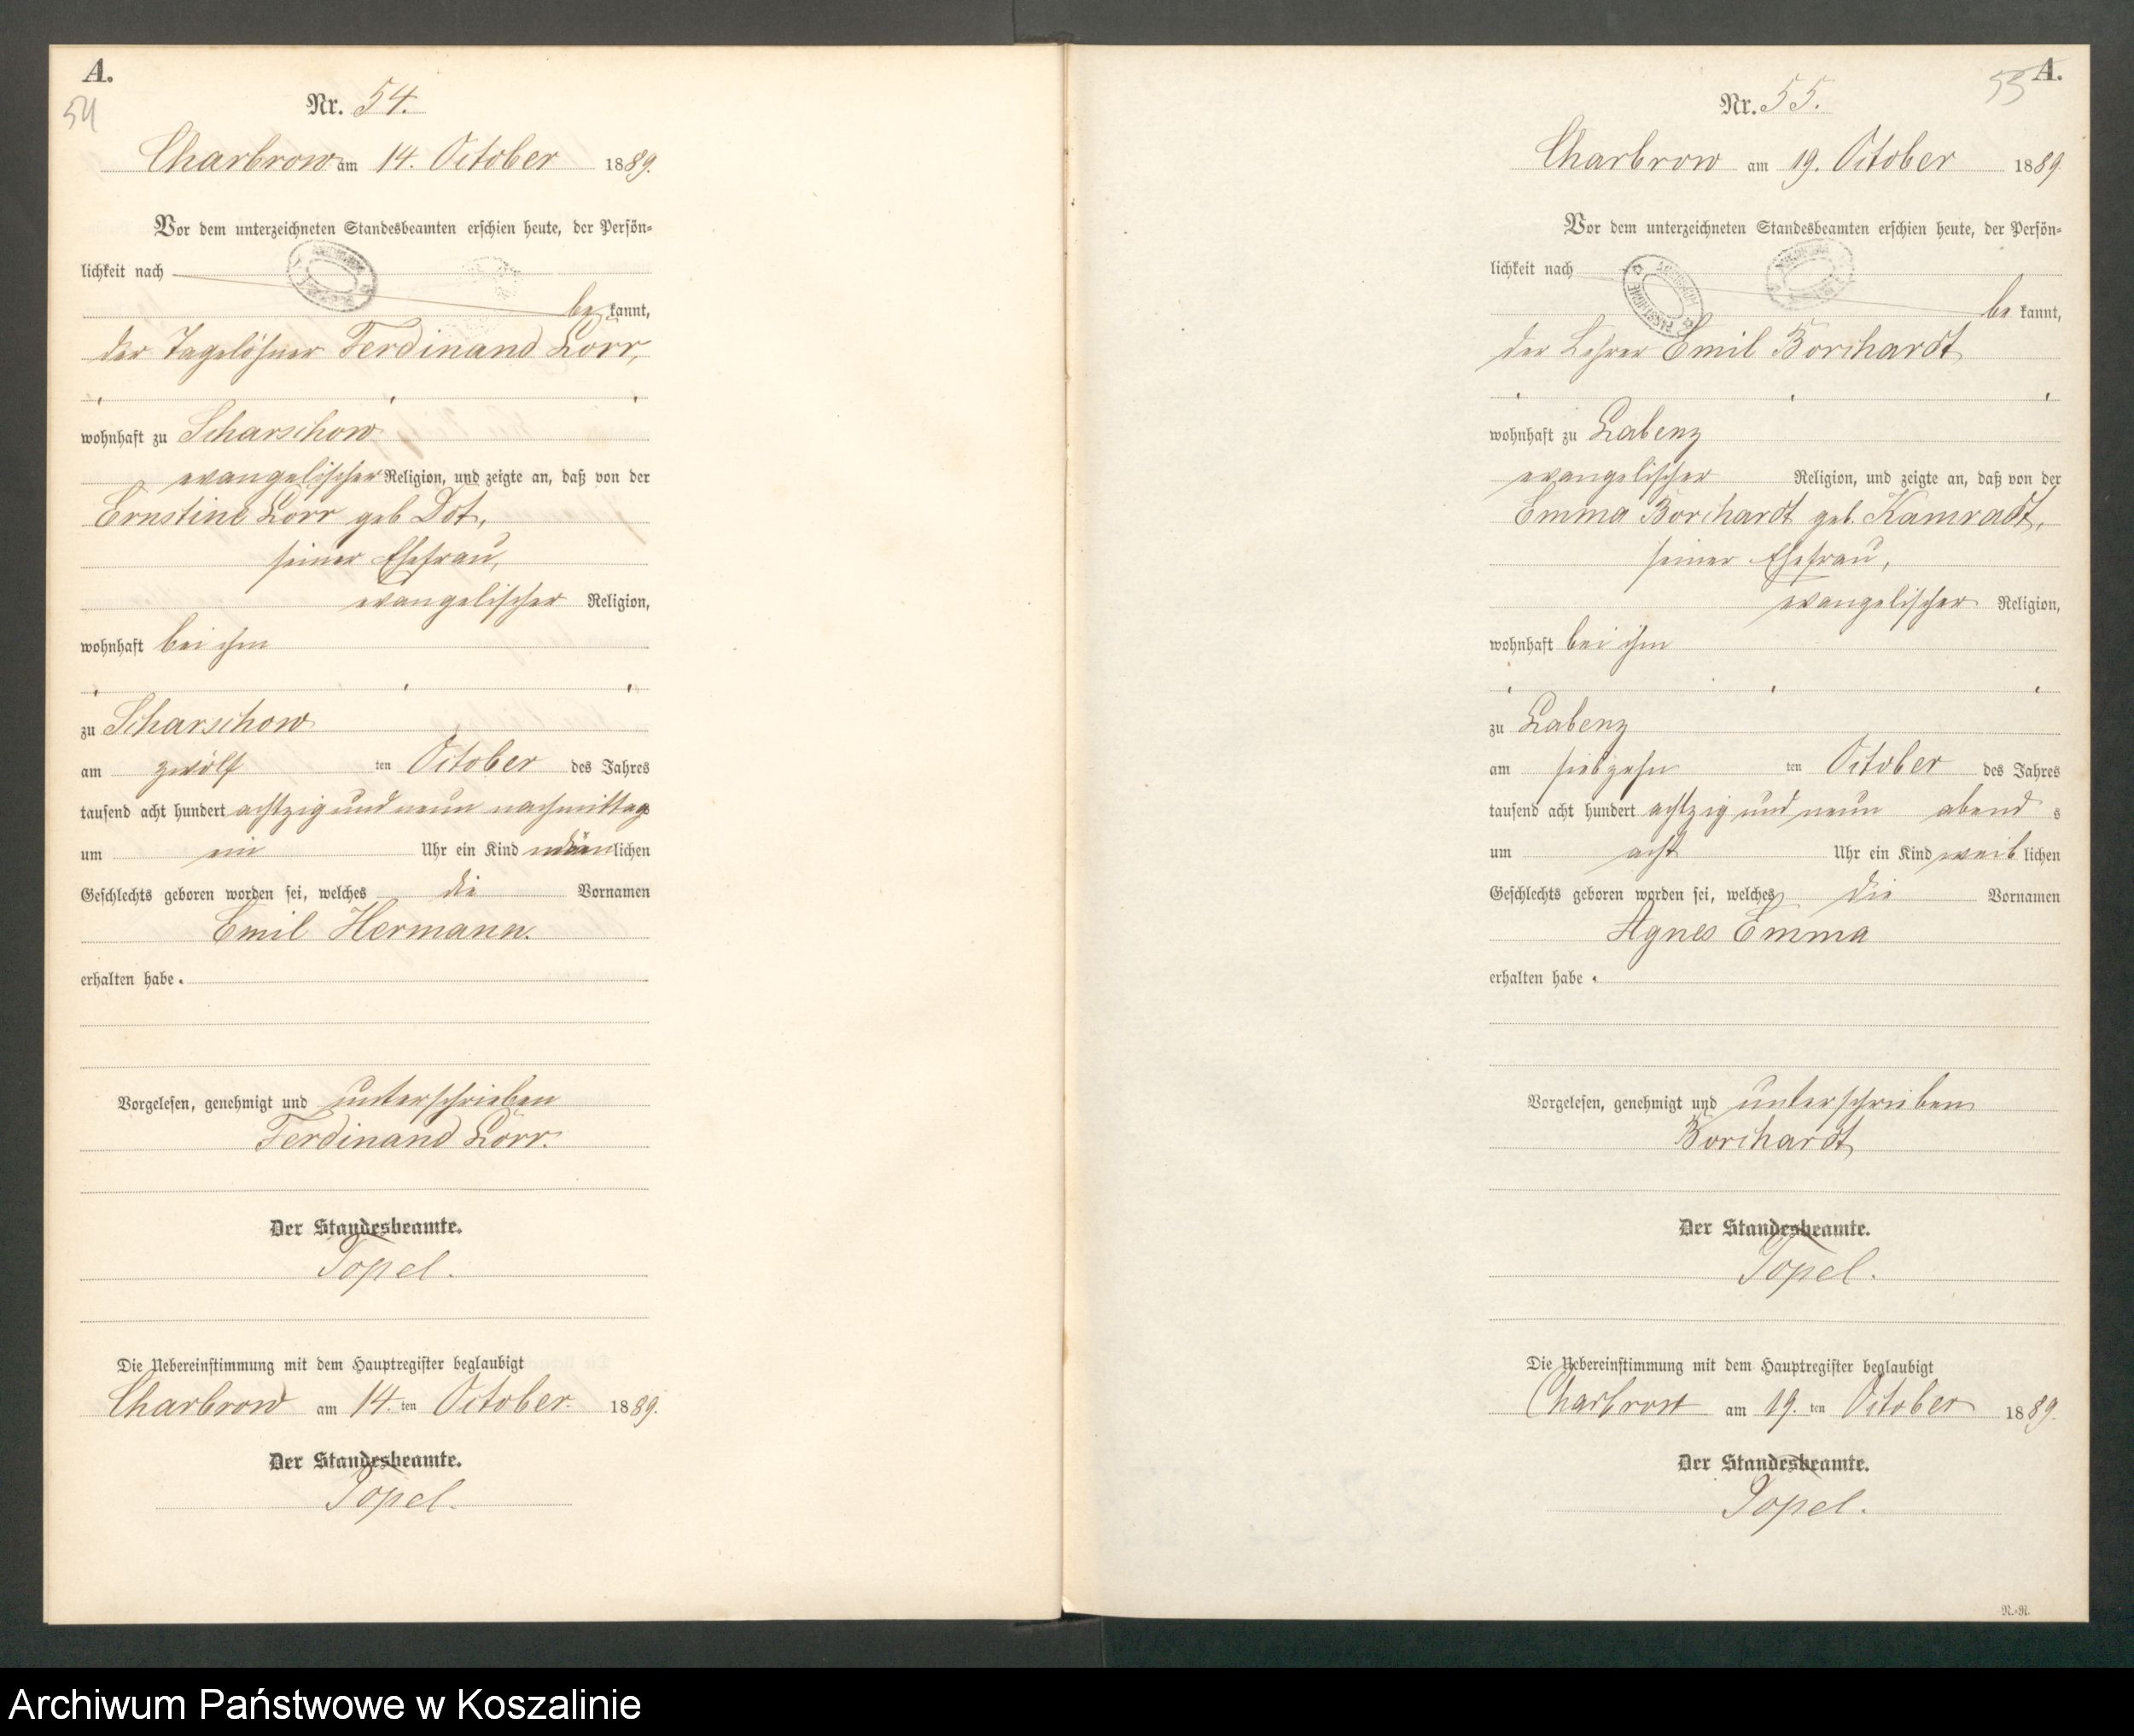 A.
54
Nr. 54.
Charbrow am 14. October 1889.
Vor dem unterzeichneten Standesbeamten erschien heute, der Persön-
lichkeit nach
be kannt,
der Tagelöhner Ferdinand Lörr,
wohnhaft zu Scharschow
evangelischer Religion, und zeigte an, daß von der
Ernstine Lörr geb Dot,
seiner Ehefrau,
evangelischer Religion,
wohnhaft bei ihm
zu Scharschow
am zwölf ten October des Jahres
tausend acht hundert achtzig und neun nachmittags
um ein Uhr ein Kind männlichen
Geschlechts geboren worden sei, welches die Vornamen
Emil Hermann.
erhalten habe.
Vorgelesen, genehmigt und unterschrieben
Ferdinand Lörr.
Der Standesbeamte.
Topel.
Die Uebereinstimmung mit dem Hauptregister beglaubigt
Charbrow am 14. ten October 1889.
Der Standesbeamte.
Topel.
A.
55
Nr. 55.
Charbrow am 19. October 1889
Vor dem unterzeichneten Standesbeamten erschien heute, der Persön-
lichkeit nach
be kannt,
der Lehrer Emil Borchardt
wohnhaft zu Labenz
evangelischer Religion, und zeigte an, daß von der
Emma Borchardt geb. Kamradt,
seiner Ehefrau,
evangelischer Religion,
wohnhaft bei ihm
zu Labenz
am siebzehn ten October des Jahres
tausend acht hundert achtzig und neun abend s
um acht Uhr ein Kind weib lichen
Geschlechts geboren worden sei, welches die Vornamen
Agnes Emma
erhalten habe.
Vorgelesen, genehmigt und unterschrieben
Borchardt
Der Standesbeamte.
Topel.
Die Uebereinstimmung mit dem Hauptregister beglaubigt
Charbrow am 19. ten October 1889.
Der Standesbeamte.
Topel.
N.-N.
Archiwum Państwowe w Koszalinie